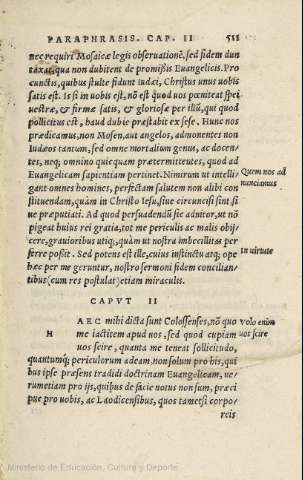 PARAPHRASIS. CAP. II 511
nec requiri Mosaicæ legis obseruationē, sed fidem dun
taxat, qua non dubitent de promißis Euangelicis. Pro
cunctis, quibus stulte fidunt iudæi, Christus unus uobis
satis est. Is si in uobis est, nō est quod uos pœniteat spei
uestræ, & firmæ satis, & gloriosæ per illū, qui quod
pollicitus est, haud dubie præstabit ex sese. Hunc nos
prædicamus, non Mosen, aut angelos, admonentes non
Iudæos tantum, sed omne mortalium genus, ac docen-
tes, neq; omnino quicquam prætermittentes, quod ad
Euangelicam sapientiam pertinet. Nimirum ut intelli-
gant omnes homines, perfectam salutem non alibi con
stituendam, quàm in Christo Iesu, siue circuncisi sint si
ue præputiati. Ad quod persuadendū sic adnitor, ut nō
pigeat huius rei gratia, tot me periculis ac malis obij-
cere, grauioribus utiq;, quàm ut nostra imbecillitas per
ferre poßit. Sed potens est ille, cuius instinctu atq; ope
hæc per me geruntur, nostro sermoni fidem concilian-
tibus (cum res postulat) etiam miraculis.
Quem nos ad
nunciamus
In uirtute
CAPVT II
HAEC mihi dicta sunt Colossenses, nō quo
me iactitem apud uos, sed quod cupiam
uos scire, quanta me teneat sollicitudo,
quantumq; periculorum adeam, non solum pro his, qui
bus ipse præsens tradidi doctrinam Euangelicam, ue-
rumetiam pro ijs, quibus de facie notus non sum, præci
pue pro uobis, ac Laodicensibus, quos tametsi corpo-
reis
volo enim
uos scire
Ministerio de Educación, Cultura y Deporte